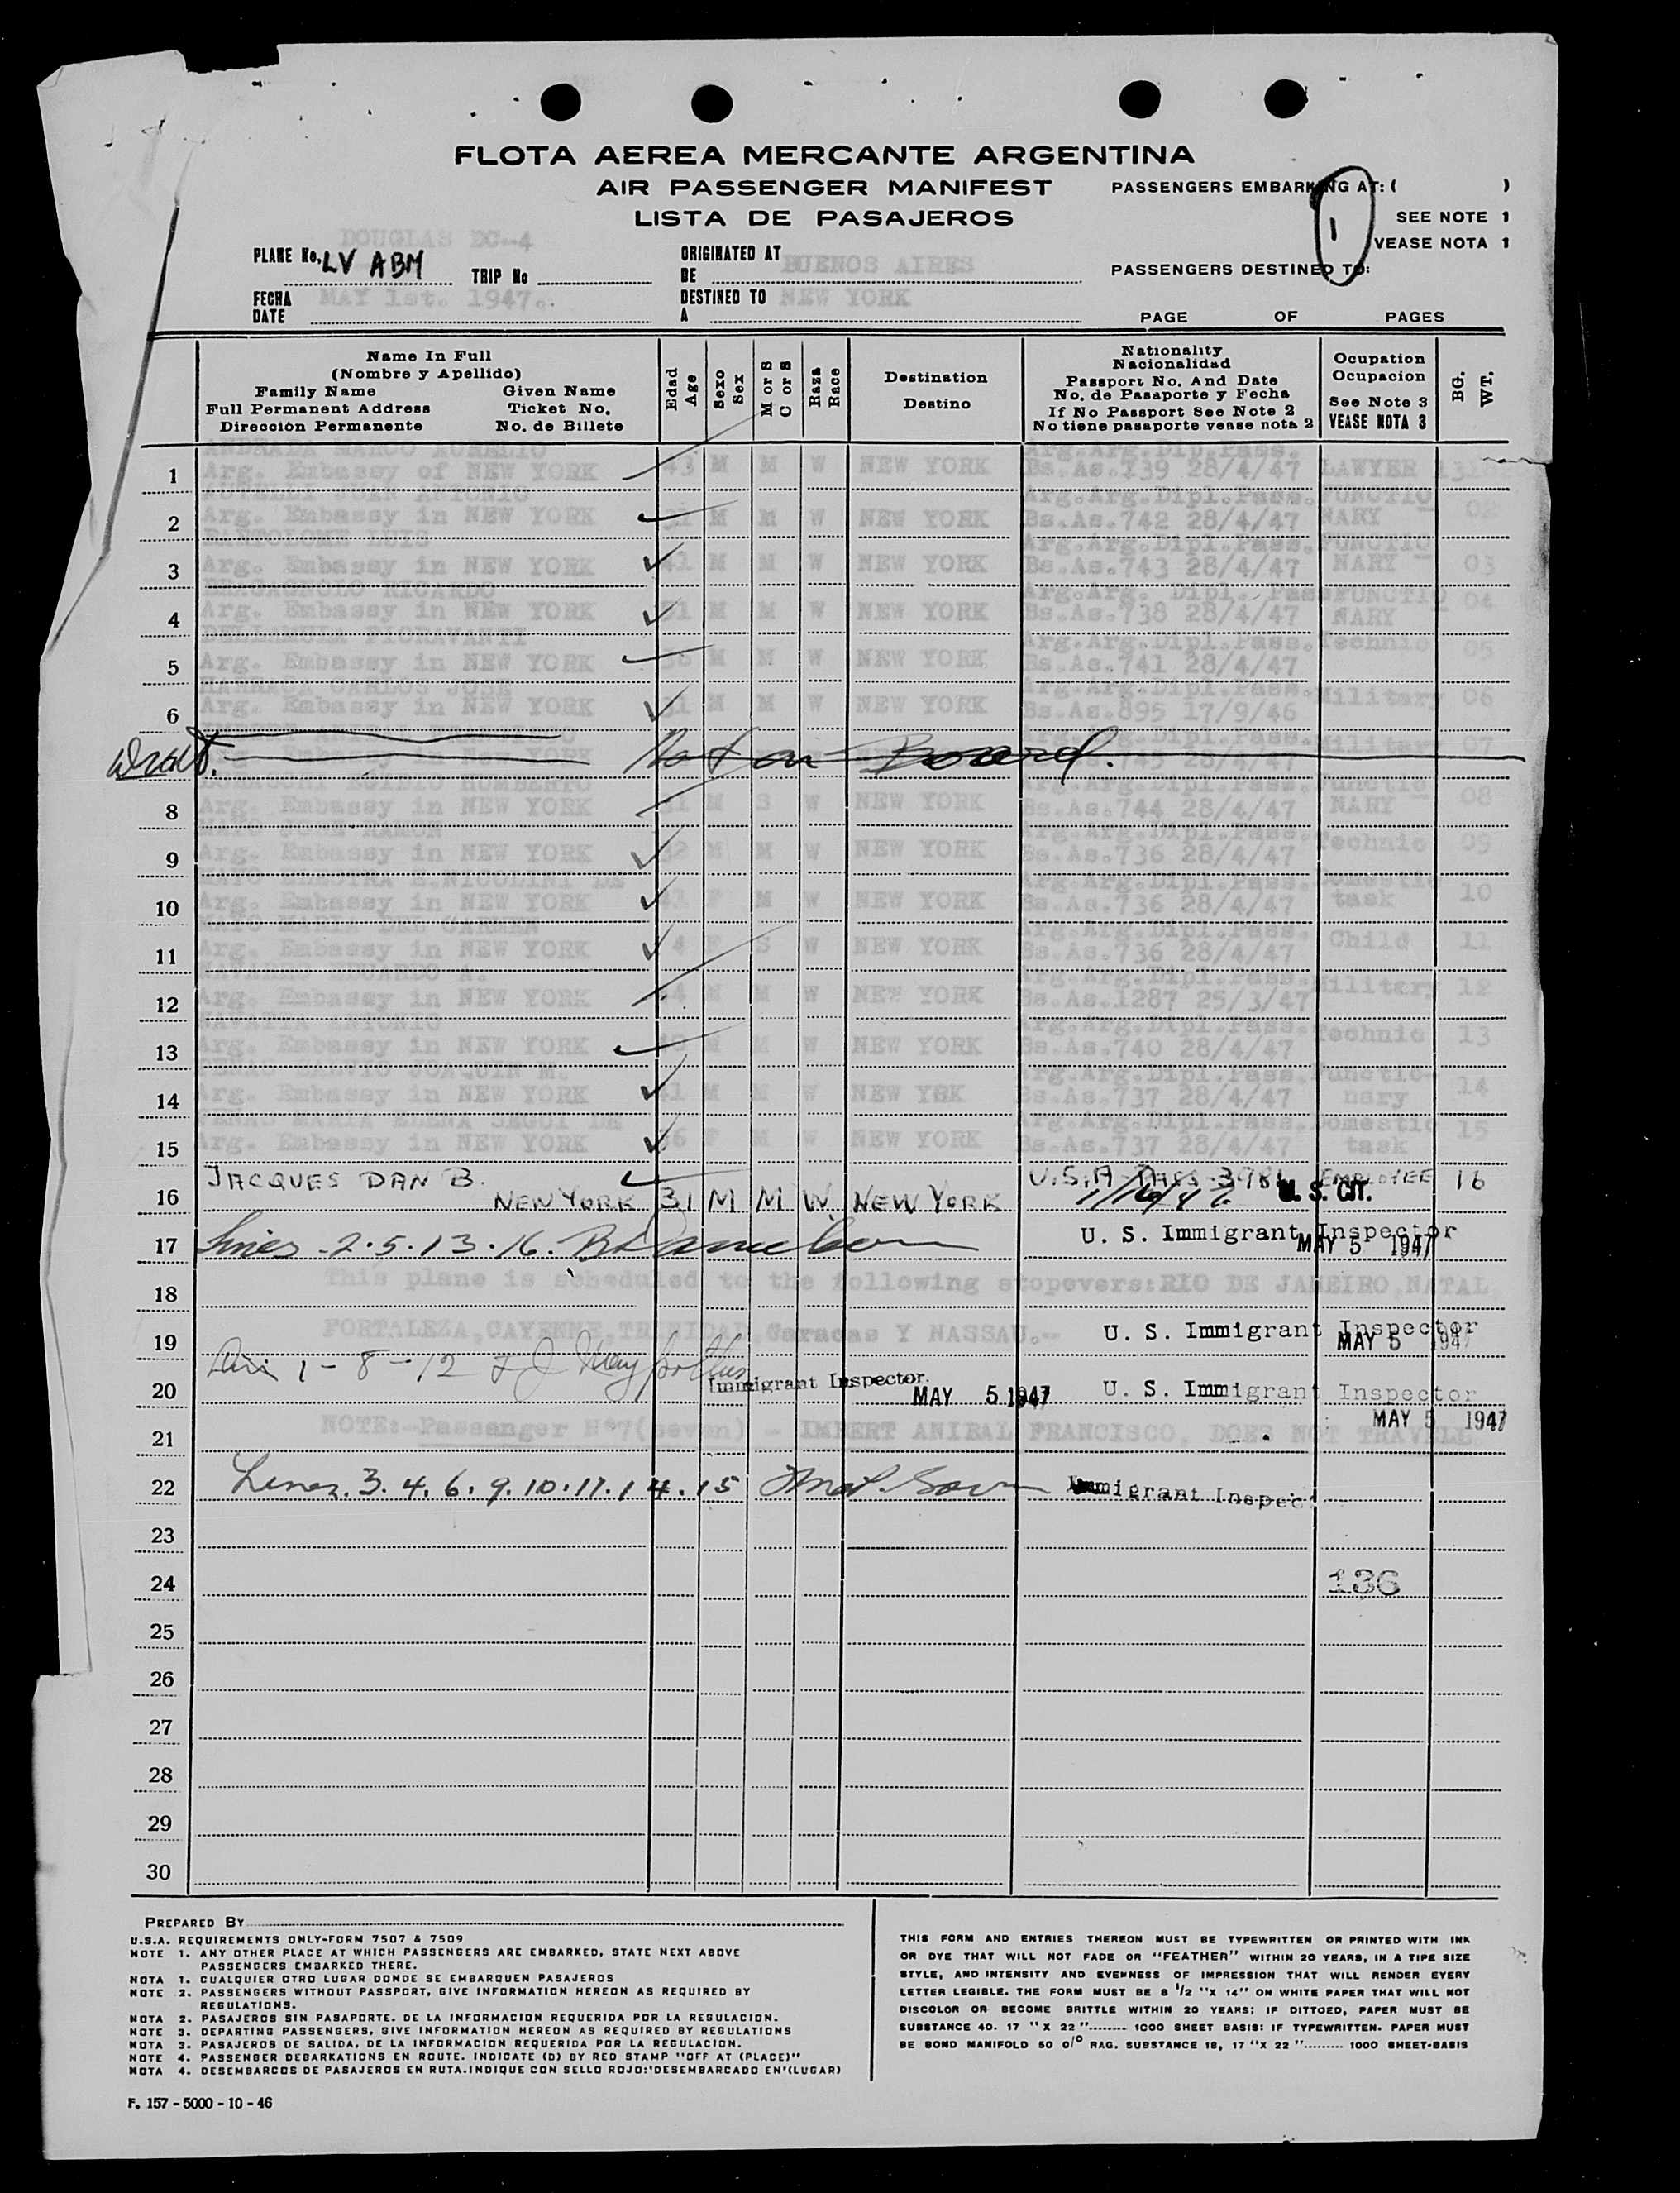 FLOTA AEREA MERCANTE ARGENTINA
AIR PASSENGER MANIFEST
LISTA DE PASAJEROS
PASSENGERS EMBARKING AT: ( )
SEE NOTE 1
VEASE NOTA 1
PASSENGERS DESTINED TO:
1
DOUGLAS DC-4
PLANE No. LV ABM TRIP No
ORIGINATED AT
DE BUENOS AIRES
FECHA MAY 1st. 1947.
DATE
DESTINED TO NEW YORK
A
PAGE OF PAGES
Name In Full
(Nombre y Apellido)
Family Name Given Name
Full Permanent Address Ticket No.
Dirección Permanente No. de Billete
Edad Age
Sexo Sex
M or S C or S
Raza Race
Destination
Destino
Nationality
Nacionalidad
Passport No. And Date
No. de Pasaporte y Fecha
If No Passport See Note 2
No tiene pasaporte vease nota 2
Ocupation
Ocupacion
See Note 3
VEASE NOTA 3
BG. WT.
ANDRADA MARCO AURELIO Arg.Arg.Dip.Pass.
1 Arg. Embassy of NEW YORK 43 M M W NEW YORK Bs.As.739 28/4/47 LAWYER
JUAN ANTONIO Arg.Arg.Dipl.Pass. FUNCTIO
2 Arg. Embassy in NEW YORK M M W NEW YORK Bs.As.742 28/4/47 NARY 02
BARTOLOME LUIS Arg.Arg.Dipl.Pass. FUNCTIO
3 Arg. Embassy in NEW YORK 41 M M W NEW YORK Bs.As.743 28/4/47 NARY 03
BRAGAGNOLO RICARDO Arg.Arg. Dipl. Pass FUNCTIO
4 Arg. Embassy in NEW YORK 31 M M W NEW YORK Bs.As.738 28/4/47 NARY 04
DELLAMULA FIORAVANTI Arg.Arg.Dipl.Pass. Technic
5 Arg. Embassy in NEW YORK M M W NEW YORK Bs.As.741 28/4/47 05
CARLOS JOSE Arg.Arg.Dipl.Pass. Military
6 Arg. Embassy in NEW YORK 31 M M W NEW YORK Bs.As.895 17/9/46 06
Arg.Arg.Dipl.Pass. Military 07
Not on Board.
Bs.As.745 28/4/47
EGIDIO HUMBERTO Arg.Arg.Dipl.Pass. Functio
8 Arg. Embassy in NEW YORK 31 M S W NEW YORK Bs.As.744 28/4/47 NARY 08
MAYO JOSE RAMON Arg.Arg.Dipl.Pass. Technic
9 Arg. Embassy in NEW YORK 32 M M W NEW YORK Bs.As.736 28/4/47 09
MAYO ELECTRA E.NICOLINI DE Arg.Arg.Dipl.Pass. Domestic
10 Arg. Embassy in NEW YORK 31 F M W NEW YORK Bs.As.736 28/4/47 task 10
MAYO MARIA DEL CARMEN Arg.Arg.Dipl.Pass.
11 Arg. Embassy in NEW YORK 4 F S W NEW YORK Bs.As.736 28/4/47 Child 11
NAVARRO EDUARDO A. Arg.Arg.Dipl.Pass. Military
12 Arg. Embassy in NEW YORK M M W NEW YORK Bs.As.1287 25/3/47 12
NAVATTA ANTONIO Arg.Arg.Dipl.Pass. Technic
13 Arg. Embassy in NEW YORK M M W NEW YORK Bs.As.740 28/4/47 13
PENAS SALVIO JOAQUIN M. Arg.Arg.Dipl.Pass. Functio-
14 Arg. Embassy in NEW YORK 41 M M W NEW YORK Bs.As.737 28/4/47 nary 14
PENAS MARIA ELENA SEGUI DE Arg.Arg.Dipl.Pass. Domestic
15 Arg. Embassy in NEW YORK F M W NEW YORK Bs.As.737 28/4/47 task 15
JACQUES DAN B. U.S.A PASS 3981 EMPLOYEE 16
16 NEW YORK 31 M M W NEW YORK U. S. CIT.
17 Lines - 2. 5. 13. 16. U. S. Immigrant Inspector
MAY 5 1947
18 This plane is scheduled to the following stopovers: RIO DE JANEIRO, NATAL
19 FORTALEZA, CAYENNE, TRINIDAD, Caracas Y NASSAU.-- U. S. Immigrant Inspector
MAY 5 1947
1 - 8 - 12
20 Immigrant Inspector. MAY 5 1947 U. S. Immigrant Inspector
MAY 5 1947
21 NOTE:-Passenger Nº7(seven) - IMBERT ANIBAL FRANCISCO, DOES NOT TRAVELL
22 Lines. 3. 4. 6. 9. 10. 11. 14. 15 Immigrant Inspec
23
24 136
25
26
27
28
29
30
PREPARED BY
U.S.A. REQUIREMENTS ONLY-FORM 7507 & 7509
NOTE 1. ANY OTHER PLACE AT WHICH PASSENGERS ARE EMBARKED, STATE NEXT ABOVE
PASSENGERS EMBARKED THERE.
NOTA 1. CUALQUIER OTRO LUGAR DONDE SE EMBARQUEN PASAJEROS
NOTE 2. PASSENGERS WITHOUT PASSPORT, GIVE INFORMATION HEREON AS REQUIRED BY
REGULATIONS.
NOTA 2. PASAJEROS SIN PASAPORTE. DE LA INFORMACION REQUERIDA POR LA REGULACION.
NOTE 3. DEPARTING PASSENGERS, GIVE INFORMATION HEREON AS REQUIRED BY REGULATIONS
NOTA 3. PASAJEROS DE SALIDA, DE LA INFORMACION REQUERIDA POR LA REGULACION.
NOTE 4. PASSENGER DEBARKATIONS EN ROUTE. INDICATE (D) BY RED STAMP "OFF AT (PLACE)"
NOTA 4. DESEMBARCOS DE PASAJEROS EN RUTA.INDIQUE CON SELLO ROJO:'DESEMBARCADO EN'(LUGAR)
THIS FORM AND ENTRIES THEREON MUST BE TYPEWRITTEN OR PRINTED WITH INK
OR DYE THAT WILL NOT FADE OR "FEATHER" WITHIN 20 YEARS, IN A TIPE SIZE
STYLE, AND INTENSITY AND EVENNESS OF IMPRESSION THAT WILL RENDER EYERY
LETTER LEGIBLE. THE FORM MUST BE 8 1/2 "X 14" ON WHITE PAPER THAT WILL NOT
DISCOLOR OR BECOME BRITTLE WITHIN 20 YEARS; IF DITTOED, PAPER MUST BE
SUBSTANCE 40. 17 "X 22"........ 1000 SHEET BASIS: IF TYPEWRITTEN. PAPER MUST
BE BOND MANIFOLD 50 0/0 RAG. SUBSTANCE 18, 17 "X 22"......... 1000 SHEET-BASIS
F. 157 - 5000 - 10 - 46